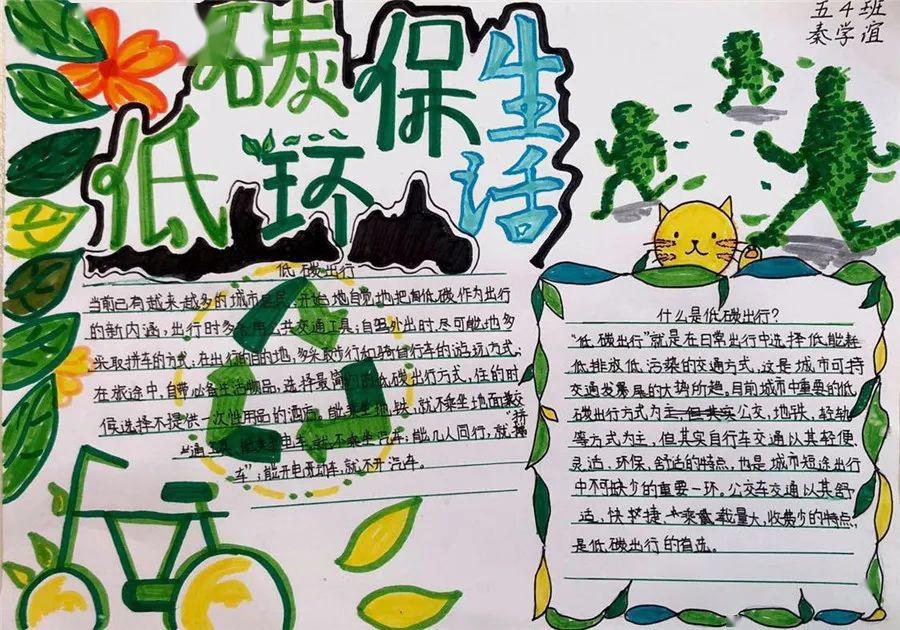 低碳环保生活
五4班
秦学谊
低碳出行
当前已有越来越多的城市居民,开始地自觉地把由低碳作为出行
的新内涵,出行时多采用公共交通工具;自驾外出时,尽可能地多
采取拼车的方式,在出行的目的地,多采取步行和骑自行车的游玩方式,
在旅途中,自带必备生活物品,选择最简约的低碳出行方式,住的时
候选择不提供一次性用品的酒店。能乘坐地铁,就不乘坐地面
通工具,能坐电车就不乘坐汽车;能几人同行,就"拼
车";能开电动车,就不开汽车。
什么是低碳出行?
"低碳出行"就是在日常出行中选择低能耗
低排放低污染的交通方式,这是城市可持
交通发展的大势所趋。目前城市中重要的低
碳出行方式为主公交,地铁,轻轨
等方式为主,但其实自行车交通以其轻便
灵活、环保、舒适的特点,也是城市短途出行
中不可缺少的重要一环。公交车交通以其舒
适,快捷,乘载量大,收费少的特点,
是低碳出行的首选。